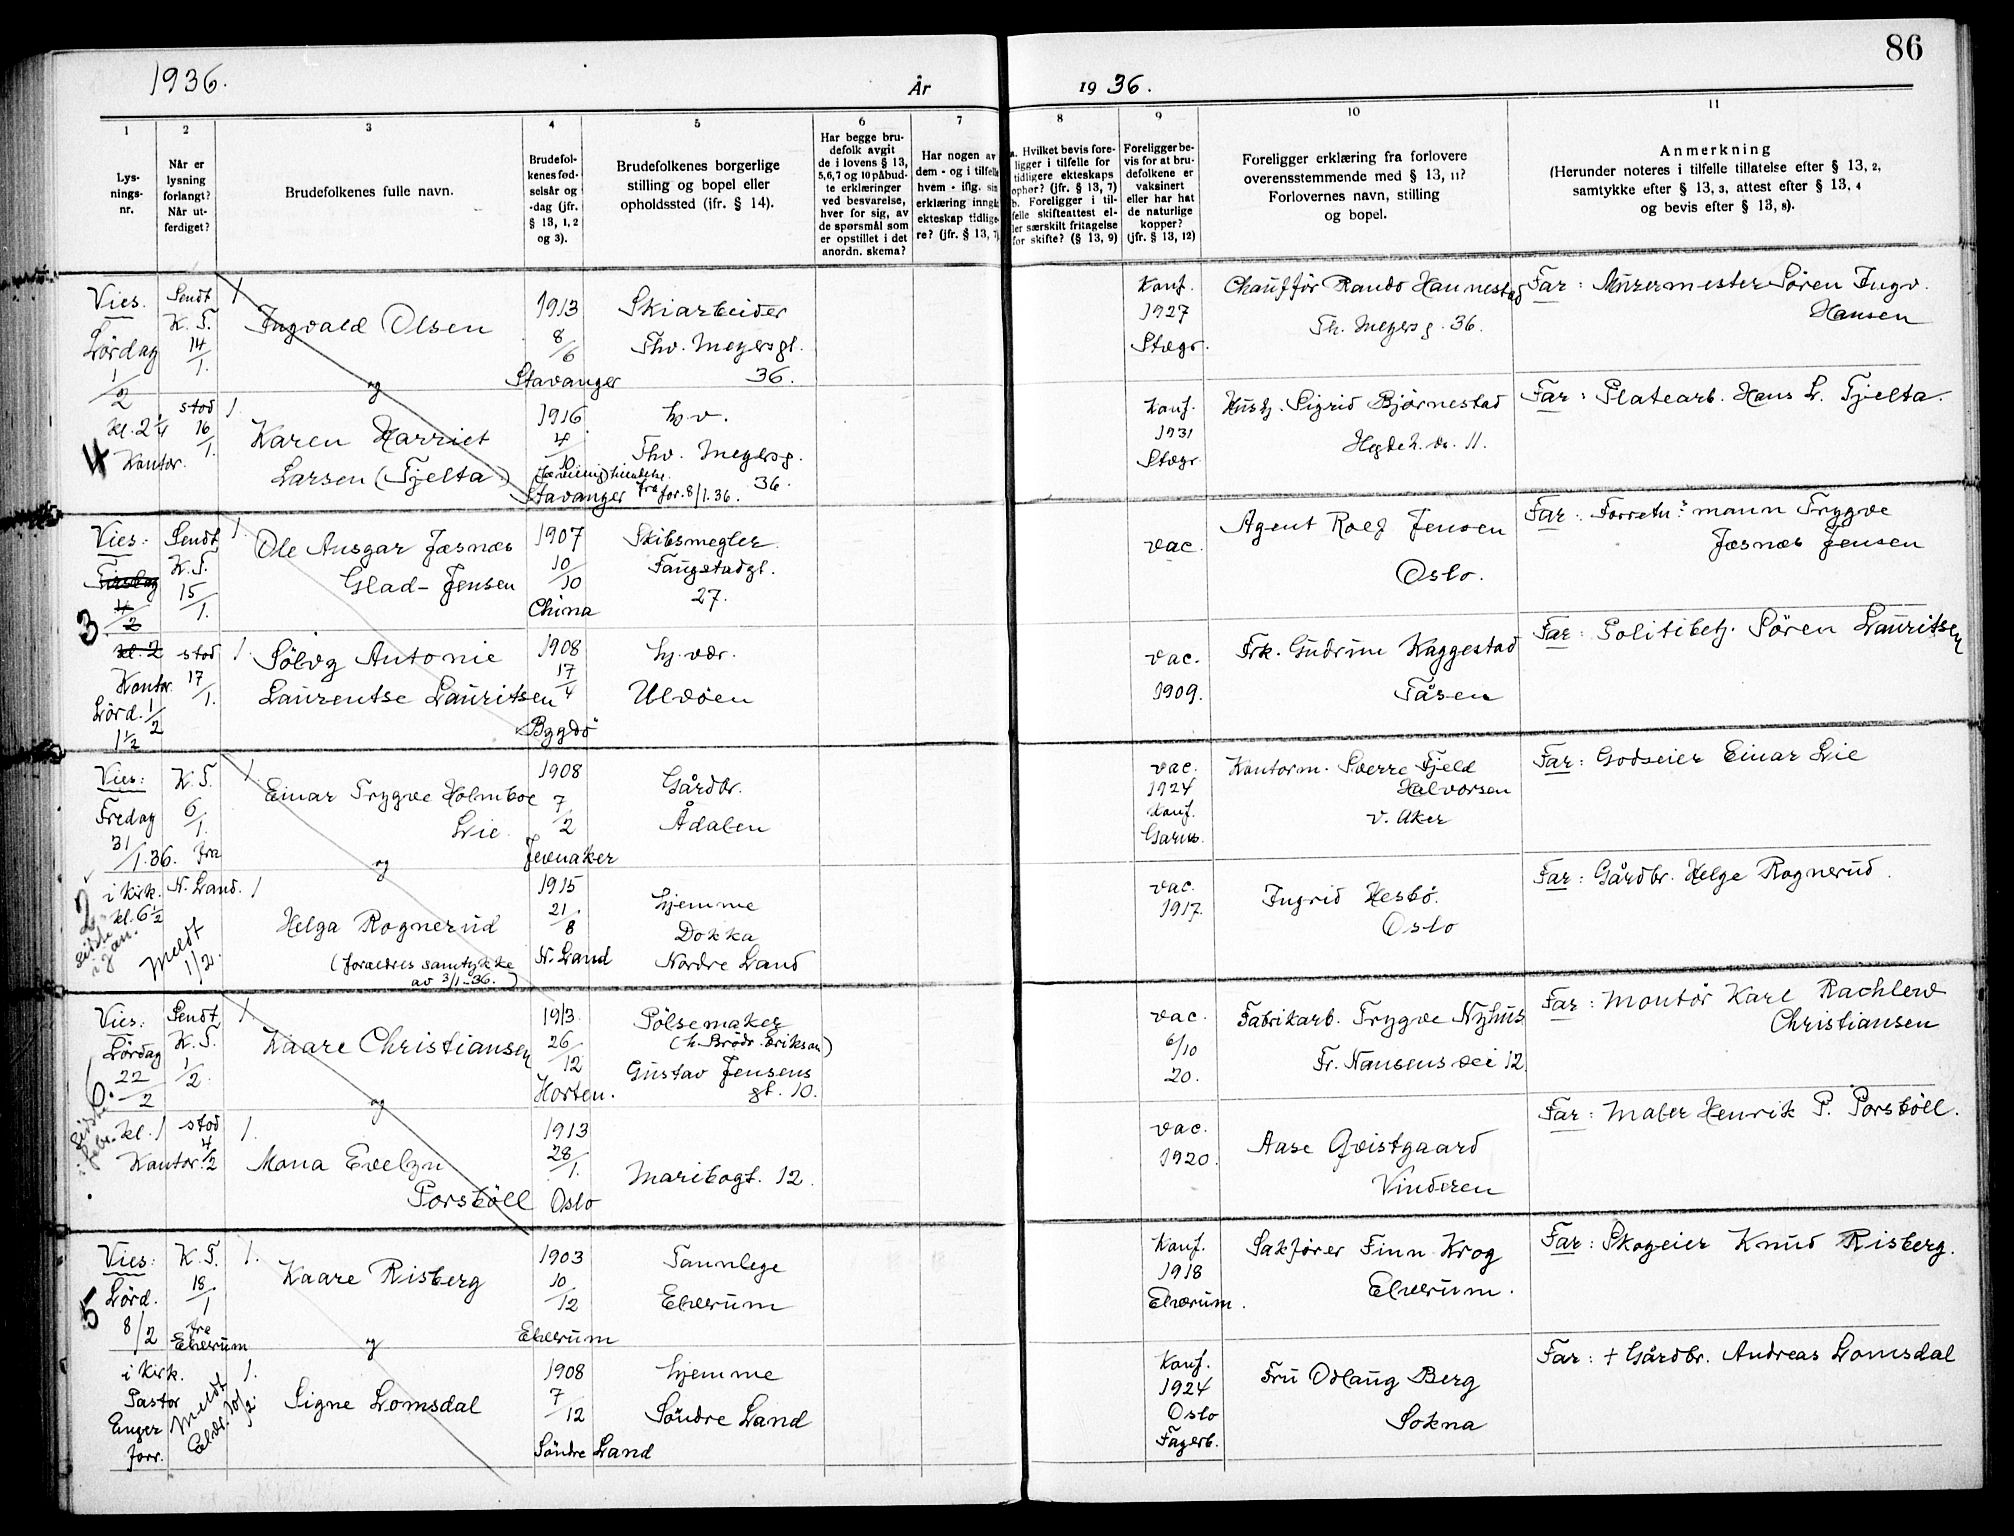 86
1936.
År
19 36.
1
2
3
4
5
6
7
8
9
10
11
Lys-
nings-
nr.
Når er
lysning
forlangt?
Når ut-
ferdiget?
Brudefolkenes fulle navn.
Brudefol-
kenes fød-
selsår og
-dag (jfr.
§ 13, 1, 2
og 3).
Brudefolkenes borgerlige
stilling og bopel eller
opholdssted (jfr. § 14).
Har begge bru-
defolk avgit
de i lovens § 13,
5,6,7 og 10 påbud-
te erklæringer
ved besvarelse,
hver for sig, av
de spørsmål som
er opstillet i det
anordn. skema?
Har nogen av
dem - og i tilfelle
hvem - iflg. sin
erklæring inngått
ekteskap tidlige-
re? (jfr. § 13, 7)
a. Hvilket bevis fore-
ligger i tilfelle for
tidligere ekteskaps
ophør? (jfr. § 13, 7)
b. Foreligger i til-
felle skifteattest el-
ler særskilt fritagelse
for skifte? (§ 13, 9)
Foreligger be-
vis for at bru-
defolkene er
vaksinert
eller har hat
de naturlige
kopper?
(jfr. § 13, 12)
Foreligger erklæring fra forlovere
overensstemmende med § 13, 11?
Forlovernes navn, stilling
og bopel.
Anmerkning
(Herunder noteres i tilfelle tillatelse efter § 13, 2,
samtykke efter § 13, 3, attest efter § 13, 4
og bevis efter § 13, 8).
4
Vies.
Lördag
1/2
kl. 2 1/4
Kontor.
Sendt
K. T.
14/1.
stod
16/1.
1
Ingvald Olsen
og
1913
8/6
Stavanger
Skiarbeider
Thv. Meyersgt.
36.
Konf.
1927
Stvgr.
Chaufför Rando Hannestad
Th. Meyersg. 36.
Far: Murermester Sören Ingv.
Hansen
1.
Karen Harriet
Larsen (Tjelta)
1916
4/10
Stavanger
fra for. 8/1.36.
hv.
Thv. Meyersg.
36.
Konf.
1931
Stvgr.
Husb. Sigrid Björnestad
Hegdeh. v. 11.
Far: Platearb. Hans L. Tjelta.
3
Vies:
Tirsdag
4/2
kl. 2
Kontor
Lörd. 1/2
1 1/2
Sendt
K. T.
15/1.
stod
17/1.
1.
Ole Ansgar Jæsnæs
Glad-Jensen
1907
10/10
China
Skibsmegler
Faugstadgt.
27.
vac.
Agent Rolf Jensen
Oslo.
Far: Forretn.s mann Trygve
Jæsnæs Jensen
1.
Sölvg Antonie
Laurentse Lauritsen
1908
17/4
Bygdö
hj. vær.
Ulvöen
vac.
1909.
Frk. Gudrun Kaggestad
Tåsen
Far: Politibetj. Sören Lauritsen
2
sidste
i jan.
Vies:
Fredag
31/1.36.
i kirk.
kl. 6 1/2
K. T.
6/1.
fra
N. Land.
Meldt
1/2.
1.
Einar Trygve Holmboe
Lie.
og
1908
7/2
Jevnaker
Gårdbr.
Ådalen
vac.
1924
Konf.
Garns.
Kontorm. Sverre Fjeld
Halvorsen
V. Aker
Far: Godseier Einar Lie
1
Helga Rognerud
(foreldres samtykke
av 3/1-36.)
1915
21/8
N. Land
hjemme
Dokka
Nordre Land
vac.
1917.
Ingrid Hesbö.
Oslo
Far: Gårdbr. Helge Rognerud.
6.
sidste
i febr.
Vies:
Lördag
22/2
kl. 1
Kontor.
Sendt
K. T.
1/2.
stod
4/2
1.
Kaare Christiansen
og
1913.
26/12
Horten.
Pölsemaker
(h. Brödr. Eriksen)
Gustav Jensens
gt. 10.
vac.
6/10
20.
Fabrikarb. Trygve Nyhus
Fr. Nansens vei 12
Far: Montör Karl Rachlew
Christiansen
1.
Mona Evelyn
Porsböll
1913
28/1.
Oslo
Maribogt. 12.
vac.
1920.
Aase Qvistgaard
Vinderen
Far: Maler Henrik P. Porsböll.
5
Vies:
Lörd.
8/2
i Kirk.
Pastor
Enger
forr.
K. T.
18/1
fra
Elverum
Meldt
Elvr. 10/2
1.
Kaare Risberg
og
1903
10/12
Elverum
Tannlege
Elverum
Konf.
1918
Elverum.
Sakförer Finn Krog
Elverum.
Far: Skogeier Knud Risberg.
1.
Signe Lomsdal
1908
7/12
Söndre Land
hjemme
Söndre Land
Konf.
1924
Oslo
Fagerb.
Fru Odlaug Berg
Sokna
Far: + Gårdbr. Andreas Lomsdal